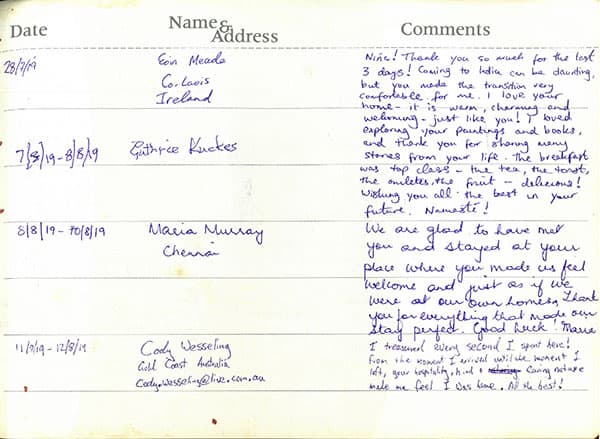 Date
Name & Address
Comments
28/7/19
Eoin Meade
Co. Laois
Ireland
Nina! Thank you so much for the last
3 days! Coming to India can be daunting,
but you made the transition very
comfortable for me. I love your
home - it is warm, charming and
welcoming - just like you! I loved
exploring your paintings and books,
and thank you for sharing many
stories from your life. The breakfast
was top class - the tea, the toast,
the omletes, the fruit - delicious!
Wishing you all the best in your
future. Namaste!
7/8/19 - 8/8/19
Guthrie Kuckes
8/8/19 - 10/8/19
Maria Murray
Chennai
We are glad to have met
you and stayed at your
place where you made us feel
welcome and just as if we
were at our own homes. Thank
you for everything that made our
stay perfect. Good luck! Maria
11/8/19 - 12/8/19
Cody Wesseling
Gold Coast Australia
Cody.wesseling@live.com.au
I treasured every second I spent here!
From the moment I arrived until the moment I
left, your hospitality, kind & caring nature
made me feel I was home. All the best!